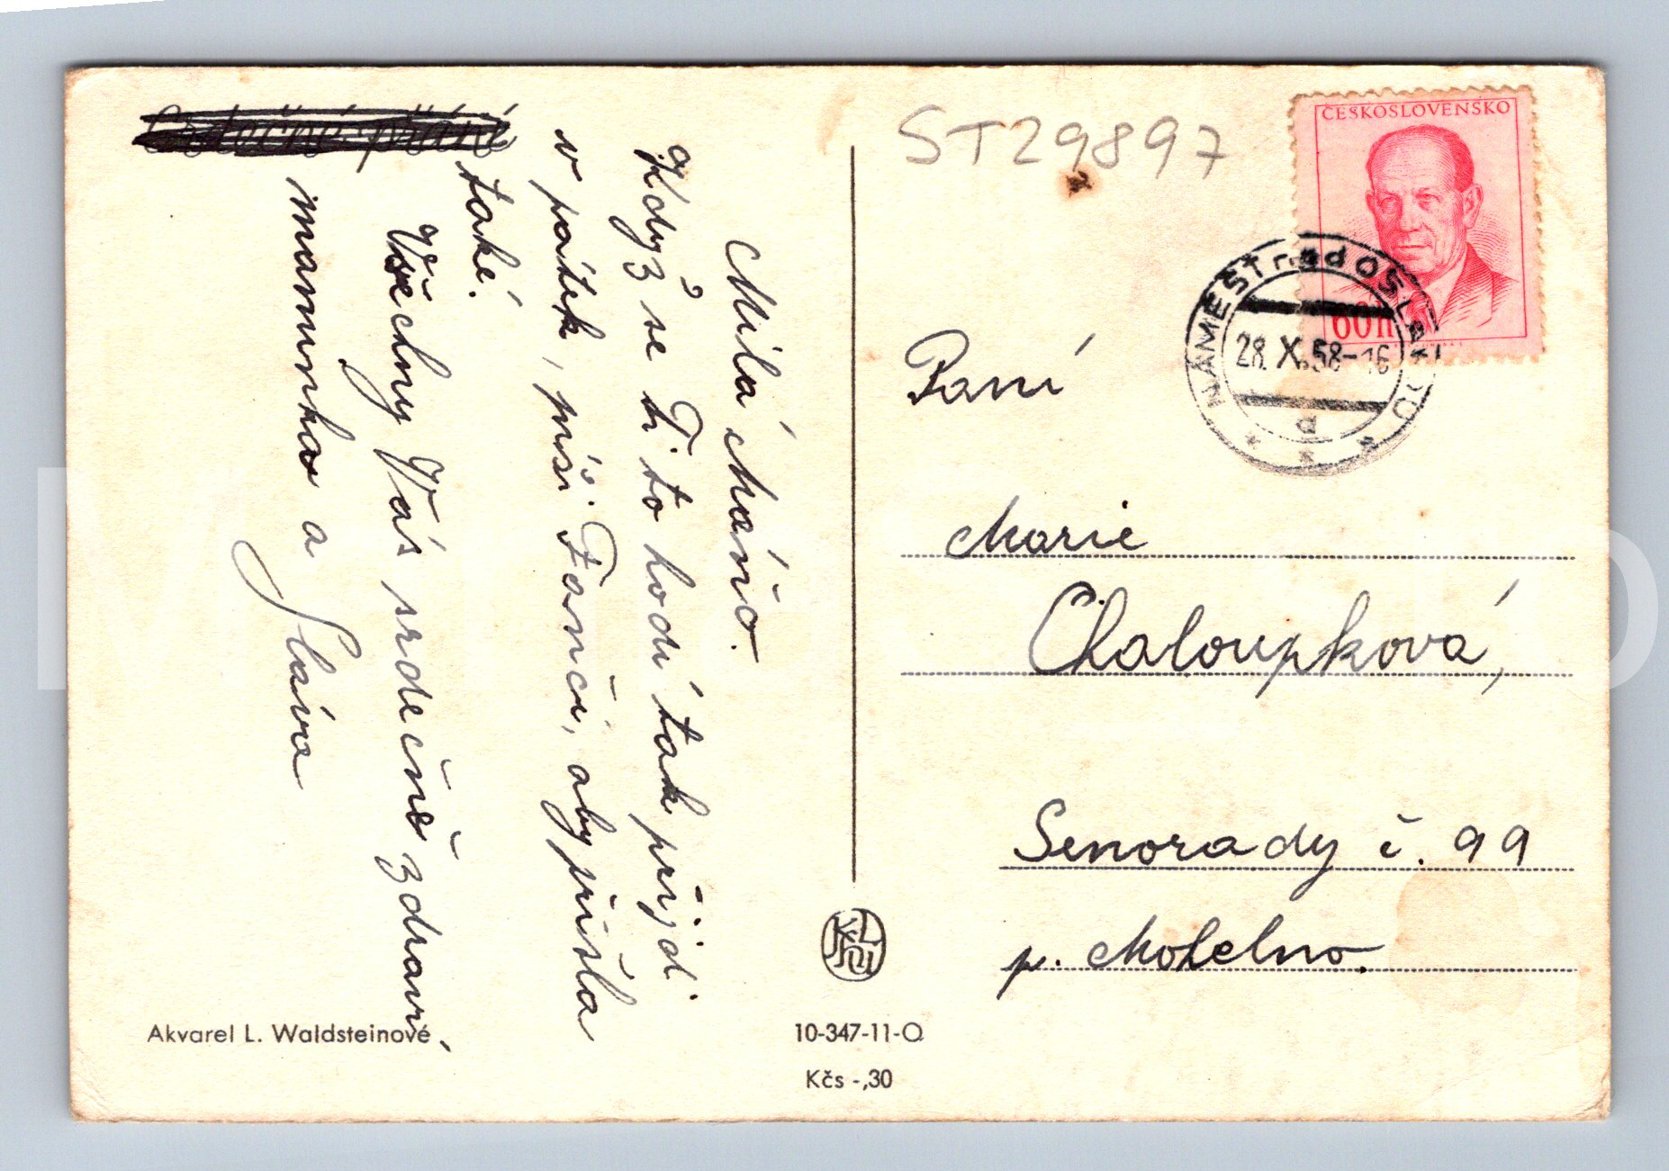 Srdečné přání
Milá Mánčo.
Když se ti to hodí tak přijď
v pátek, piši Fančí, aby přišla
také.
Všechny Vás srdečně zdraví
maminka a Sláva
Akvarel L. Waldsteinové
10-347-11-O
Kčs -,30
ST29897
ČESKOSLOVENSKO
60 h
NÁMĚŠŤ nad OSLAVOU
28.X.58-16
a
Paní
Marie
Chaloupková,
Senorady č. 99
p. Mohelno.